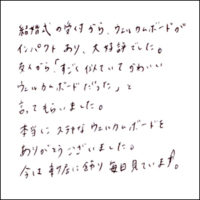 結婚式の受付から、ウェルカムボードが
インパクトあり、大好評でした。
友人から「すごく似ていてかわいい
ウェルカムボードだった」と
言ってもらいました。
本当にステキなウェルカムボードを
ありがとうございました。
今は新居に飾り毎日見ています。